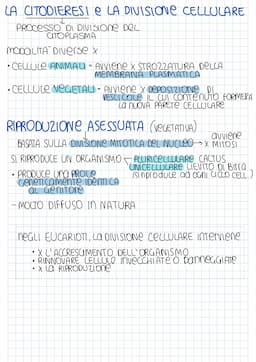 LA CITODIERESI e LA DIVISIONE CELLULARE
PROCESSO DI DIVISIONE DEL
CITOPLASMA
MODALITA' DIVERSE X
• CELLULE ANIMALI - AVVIENE X STROZZATURA DELLA
MEMBRANA PLASMATICA
• CELLULE VEGETALI - AVVIENE X DEPOSIZIONE DI
VESCICOLE IL CUI CONTENUTO FORMERÀ
LA NUOVA PARETE CELLULARE
RIPRODUZIONE ASESSUATA (VEGETATIVA)
BASATA SULLA DIVISIONE MITOTICA DEL NUCLEO → avviene X MITOSI
SI RIPRODUCE UN ORGANISMO PLURICELLULARE CACTUS
UNICELLULARE LIEVITO DI BIRRA
• PRODUCE UNA PROLE (SI RIPRODUCE AD OGNI CICLO CELL.)
GENETICAMENTE IDENTICA
AL GENITORE
- MOLTO DIFFUSO IN NATURA
NEGLI EUCARIOTI, LA DIVISIONE CELLULARE INTERVIENE
• X L'ACCRESCIMENTO DELL'ORGANISMO
• RINNOVARE CELLULE INVECCHIATE O DANNEGGIATE
• X LA RIPRODUZIONE